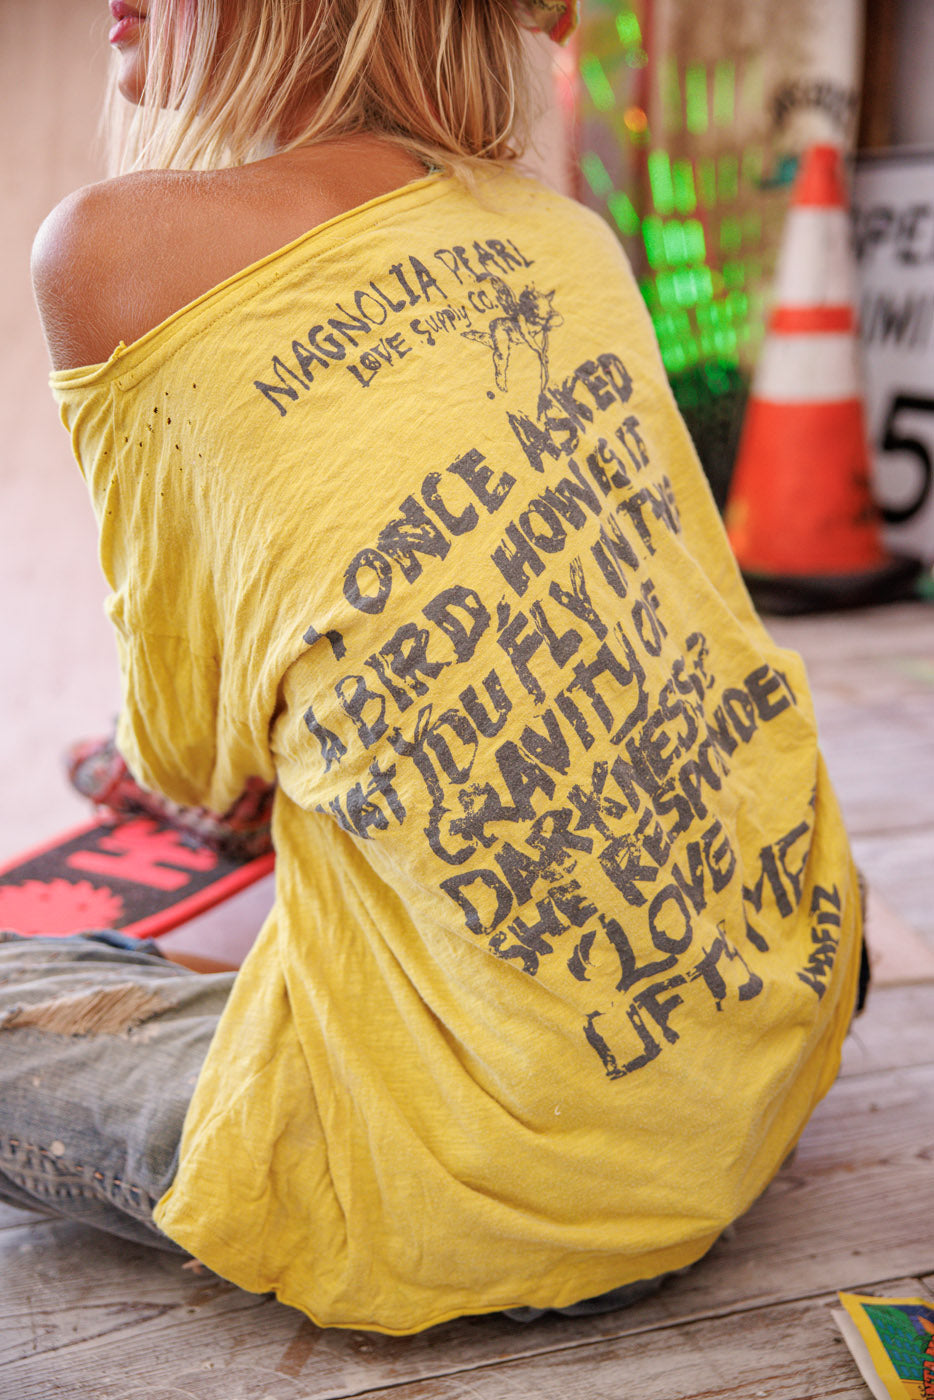 MAGNOLIA PEARL
LOVE Supply CO.
I ONCE ASKED
A BIRD, HOW IS IT
THAT YOU FLY IN THE
GRAVITY OF
DARKNESS?
SHE RESPONDED
'LOVE
LIFTS ME
HAFIZ
SPEED
LIMIT
5